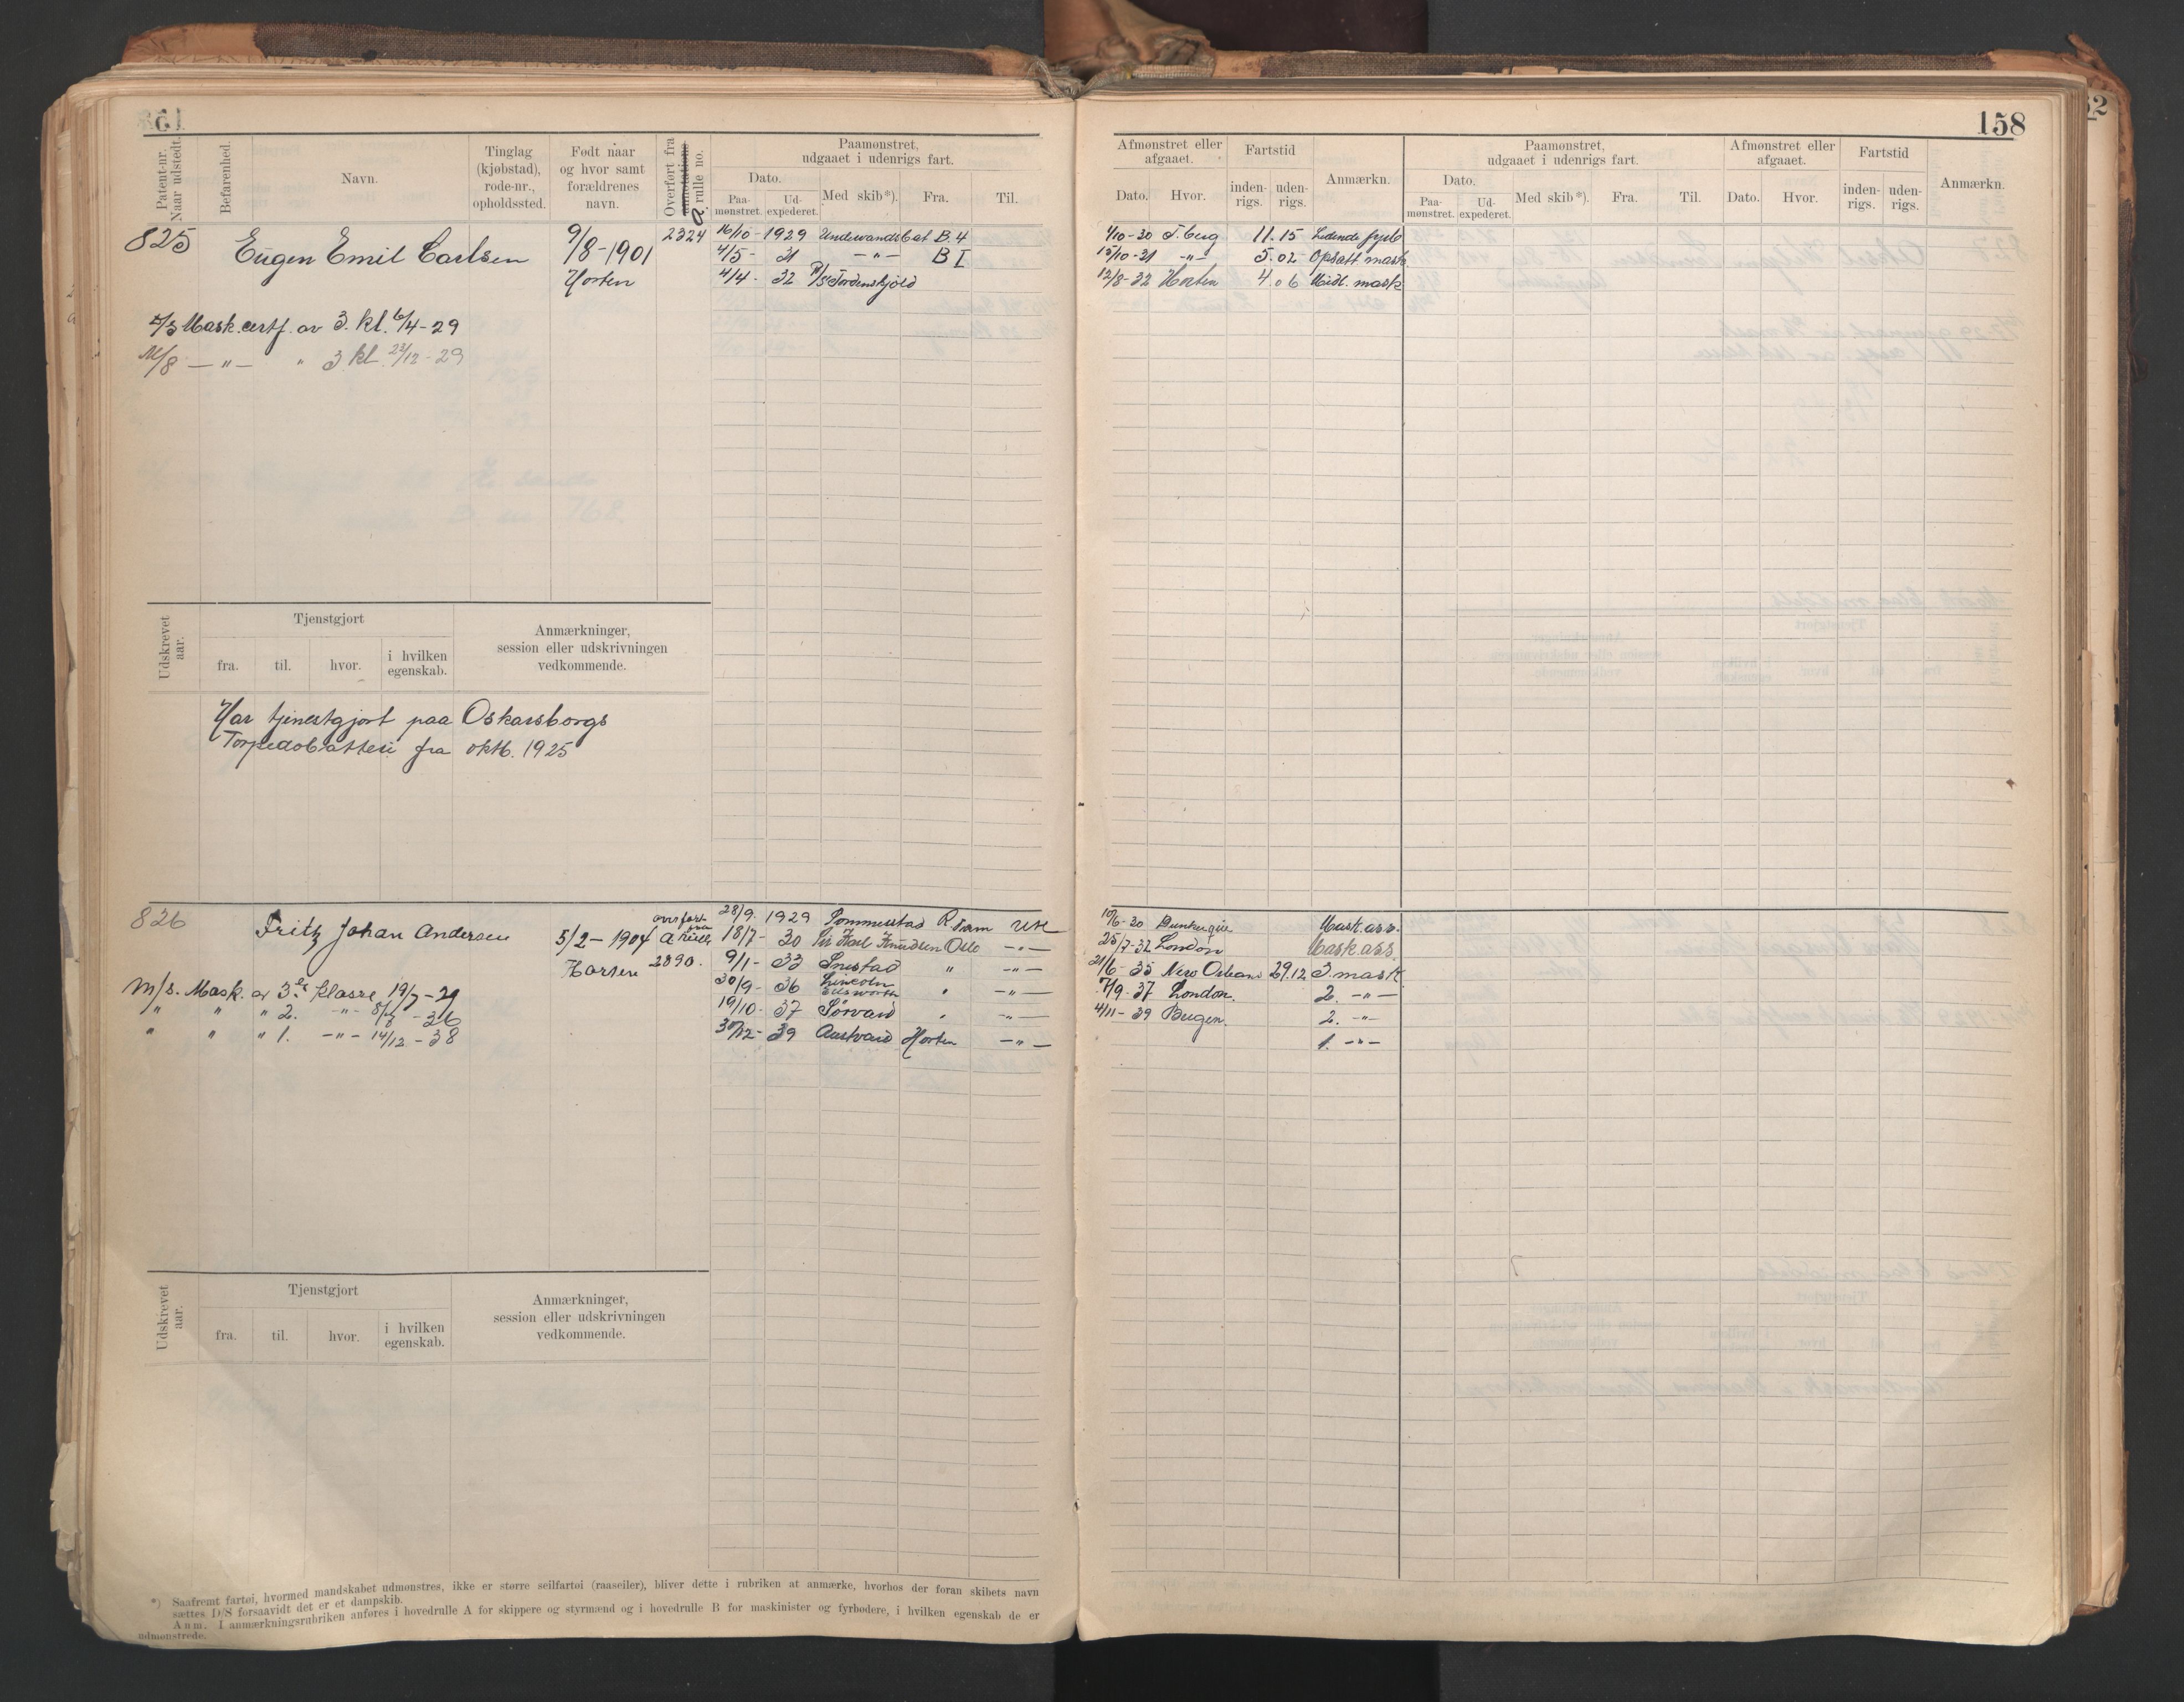 158
Patent-nr. Naar udstedt.
Befarenhed.
Navn.
Tinglag (kjøbstad), rode-nr., opholdssted.
Født naar og hvor samt forældrenes navn.
Overført fra annotations rulle no.
a
Paamønstret, udgaaet i udenrigs fart.
Dato.
Paa-mønstret.
Ud-expederet.
Med skib*).
Fra.
Til.
Afmønstret eller afgaaet.
Dato.
Hvor.
Fartstid
inden-rigs.
uden-rigs.
Anmærkn.
Paamønstret, udgaaet i udenrigs fart.
Dato.
Paa-mønstret.
Ud-expederet.
Med skib*).
Fra.
Til.
Afmønstret eller afgaaet.
Dato.
Hvor.
Fartstid
inden-rigs.
uden-rigs.
Anmærkn.
825 Eugen Emil Carlsen 9/8-1901 2324 16/10-1929 Undervandsbat B.4 4/10-30 T.berg 11.15 Ledende fyrb
4/5- 31 -"- B I 15/10-31 -"- 5.02 Opsatt mask
Horten 4/4- 32 P/S Tordenskjold 12/8-32 Horten 4.06 Midl. mask
D/S Mask.certf. av 3. kl. 6/4-29
M/8 -"- " 3 kl. 23/12-29
Udskrevet aar.
Tjenstgjort
fra.
til.
hvor.
i hvilken egenskab.
Anmærkninger, session eller udskrivningen vedkommende.
Har tjenestgjort paa Oskarsborgs
Torpedobatteri fra oktb. 1925
826 Fritz Johan Andersen 5/2-1904 overført fra A rulle 28/9. 1929 Pommerstad R dam Utl 10/6-30 Dunkerque Mask.ass.
18/7- 30 Sir Karl Knudsen Oslo -"- 25/7-32 London Mask.ass.
Horten 2890. 9/1- 33 Snestad " -"- 21/6-35 New Orleans 29.12 3. mask.
M/S. Mask. av 3. klasse 19/7-29 30/9- 36 Lincoln Ellsworth " -"- 7/9-37 London. 2. -"-
" " " 2. -"- 8/7-36 19/10- 37 Sørvard " -"- 4/11-39 Bergen. 2. -"-
" " " 1. -"- 14/12-38 30/12- 39 Austvard Horten -"- 1. -"-
Udskrevet aar.
Tjenstgjort
fra.
til.
hvor.
i hvilken egenskab.
Anmærkninger, session eller udskrivningen vedkommende.
*) Saafremt fartøi, hvormed mandskabet udmønstres, ikke er større seilfartøi (raaseiler), bliver dette i rubriken at anmærke, hvorhos der foran skibets navn
sættes D/S forsaavidt det er et dampskib.
Anm. I anmærkningsrubriken anføres i hovedrulle A for skippere og styrmænd og i hovedrulle B for maskinister og fyrbødere, i hvilken egenskab de er
udmønstrede.